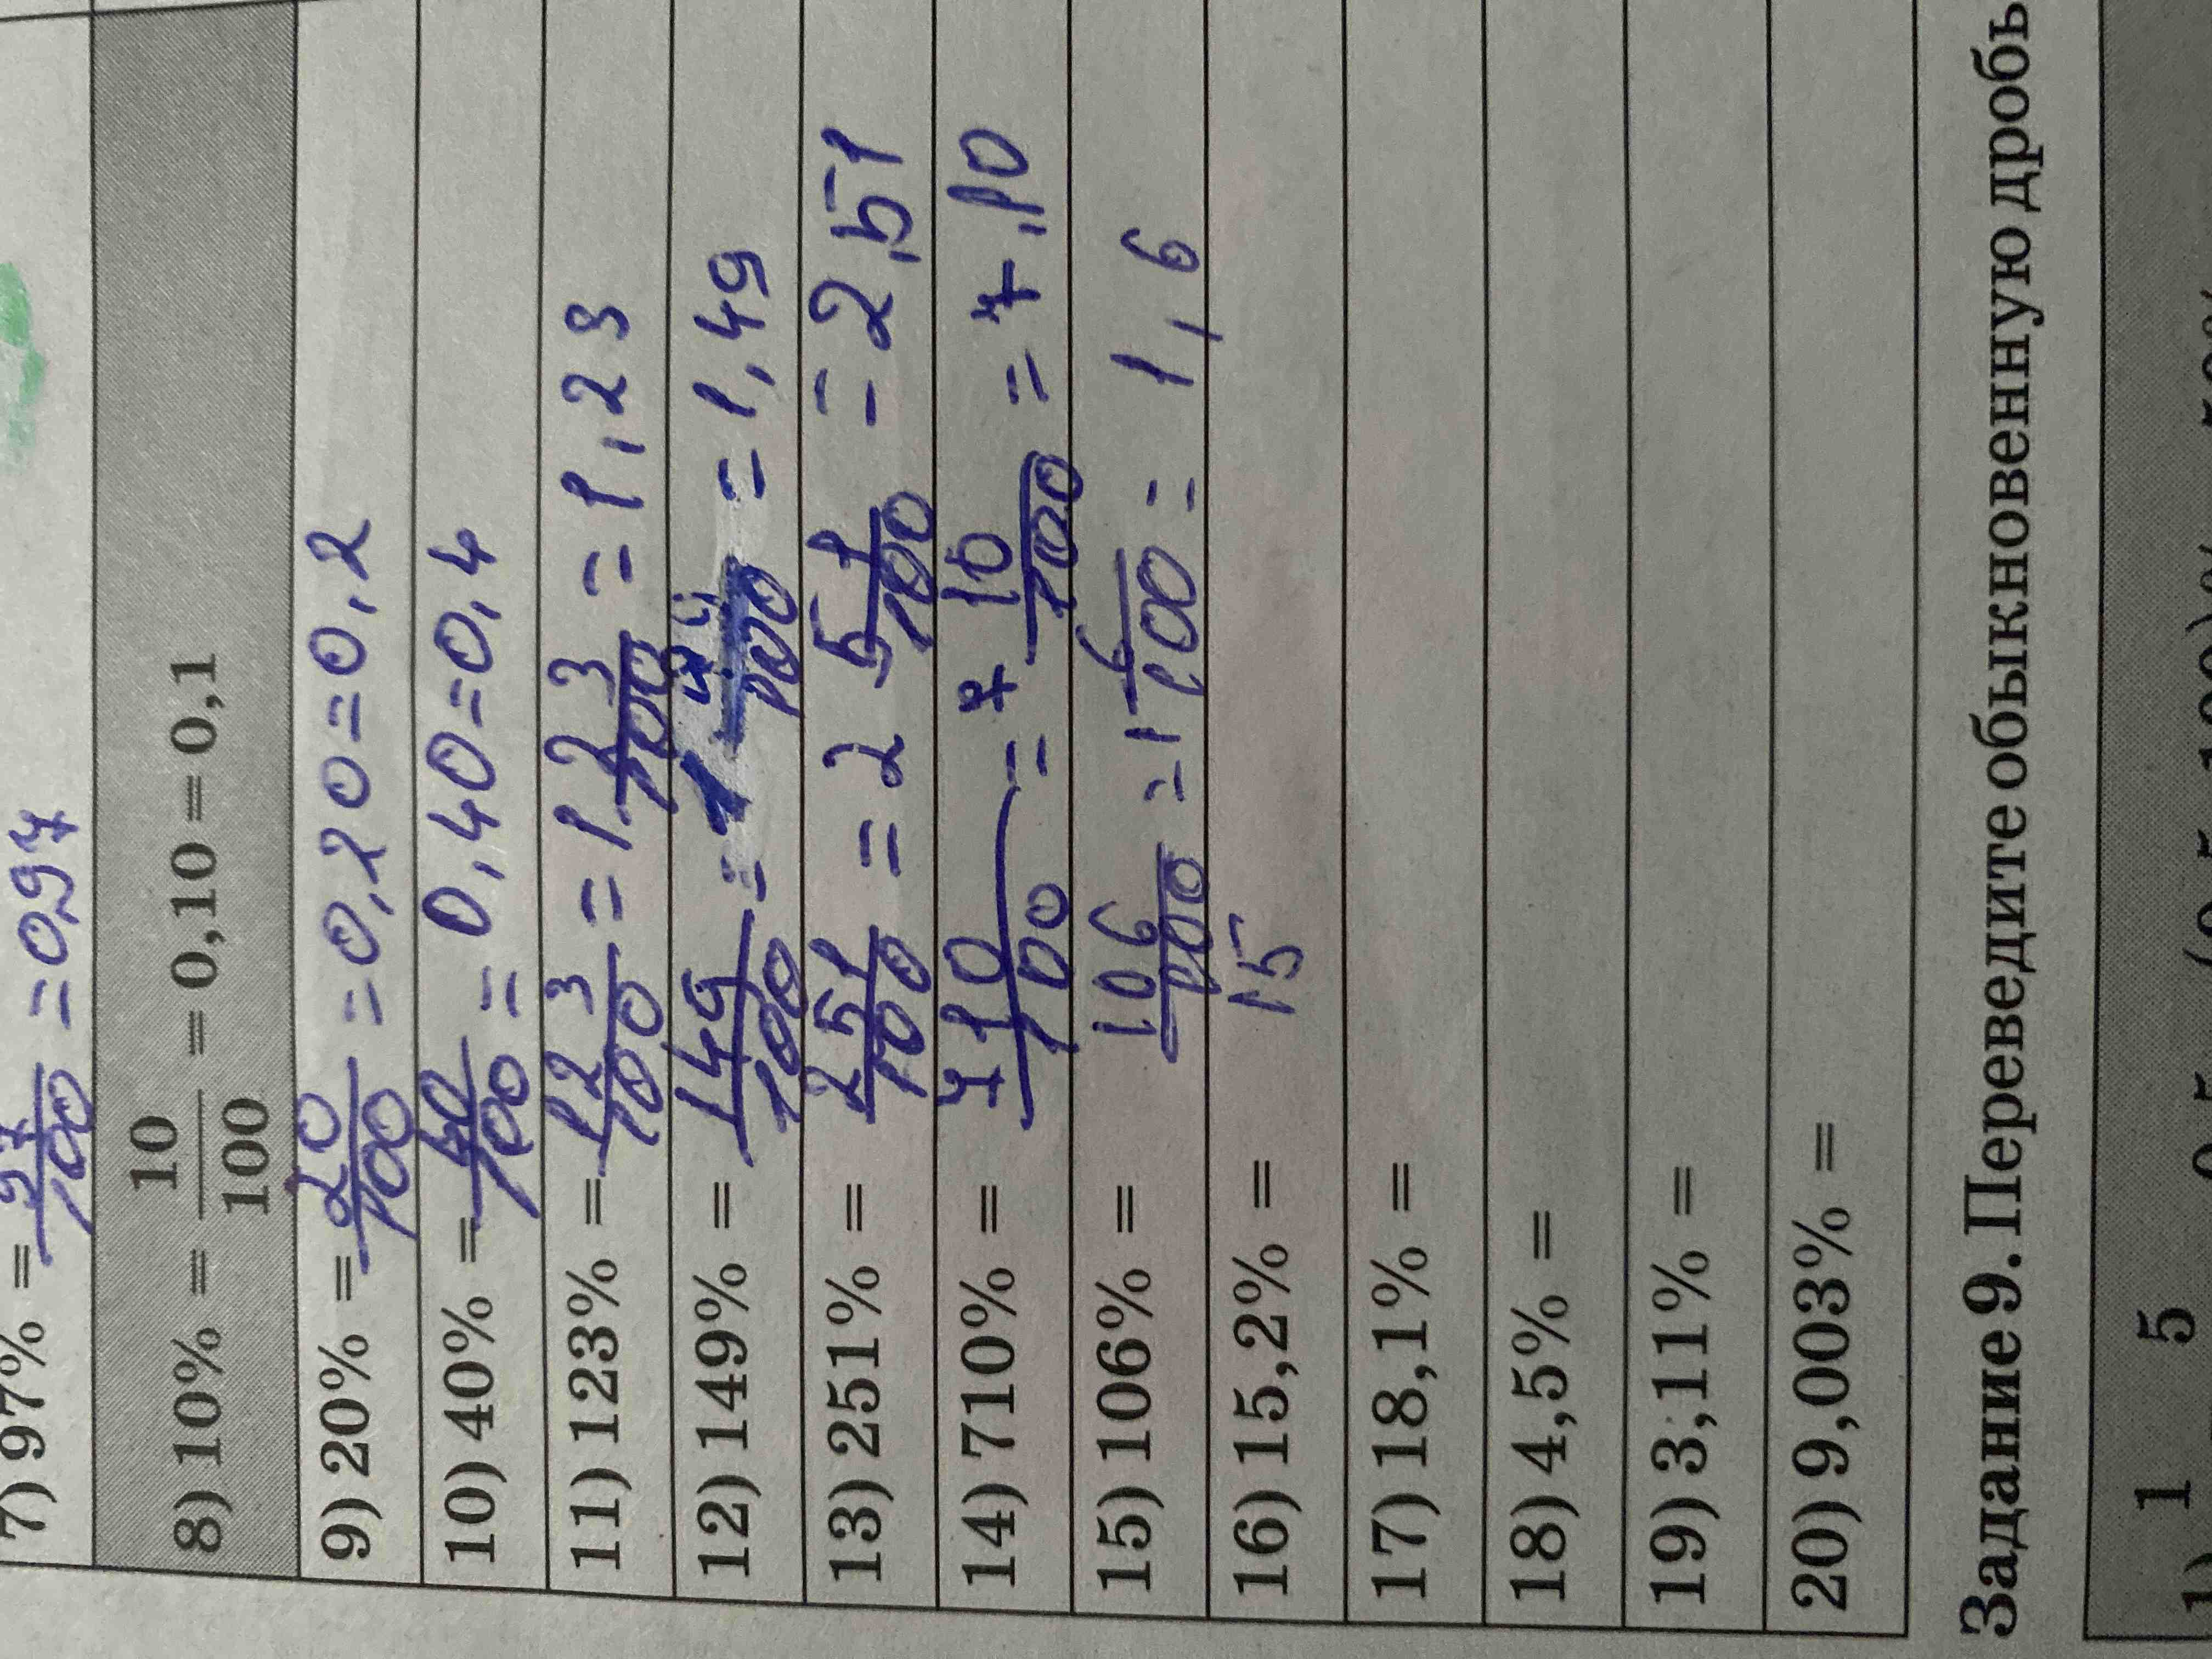 7) 97% = 97/100 = 0,97
8) 10% = 10/100 = 0,10 = 0,1
9) 20% = 20/100 = 0,20 = 0,2
10) 40% = 40/100 = 0,40 = 0,4
11) 123% = 123/100 = 1 23/100 = 1,23
12) 149% = 149/100 = 1 49/100 = 1,49
13) 251% = 251/100 = 2 51/100 = 2,51
14) 710% = 710/100 = 7 10/100 = 7,10
15) 106% = 106/100 = 1 6/100 = 1,6
16) 15,2% = 15
17) 18,1% =
18) 4,5% =
19) 3,11% =
20) 9,003% =
Задание 9. Переведите обыкновенную дробь
1) 1 5